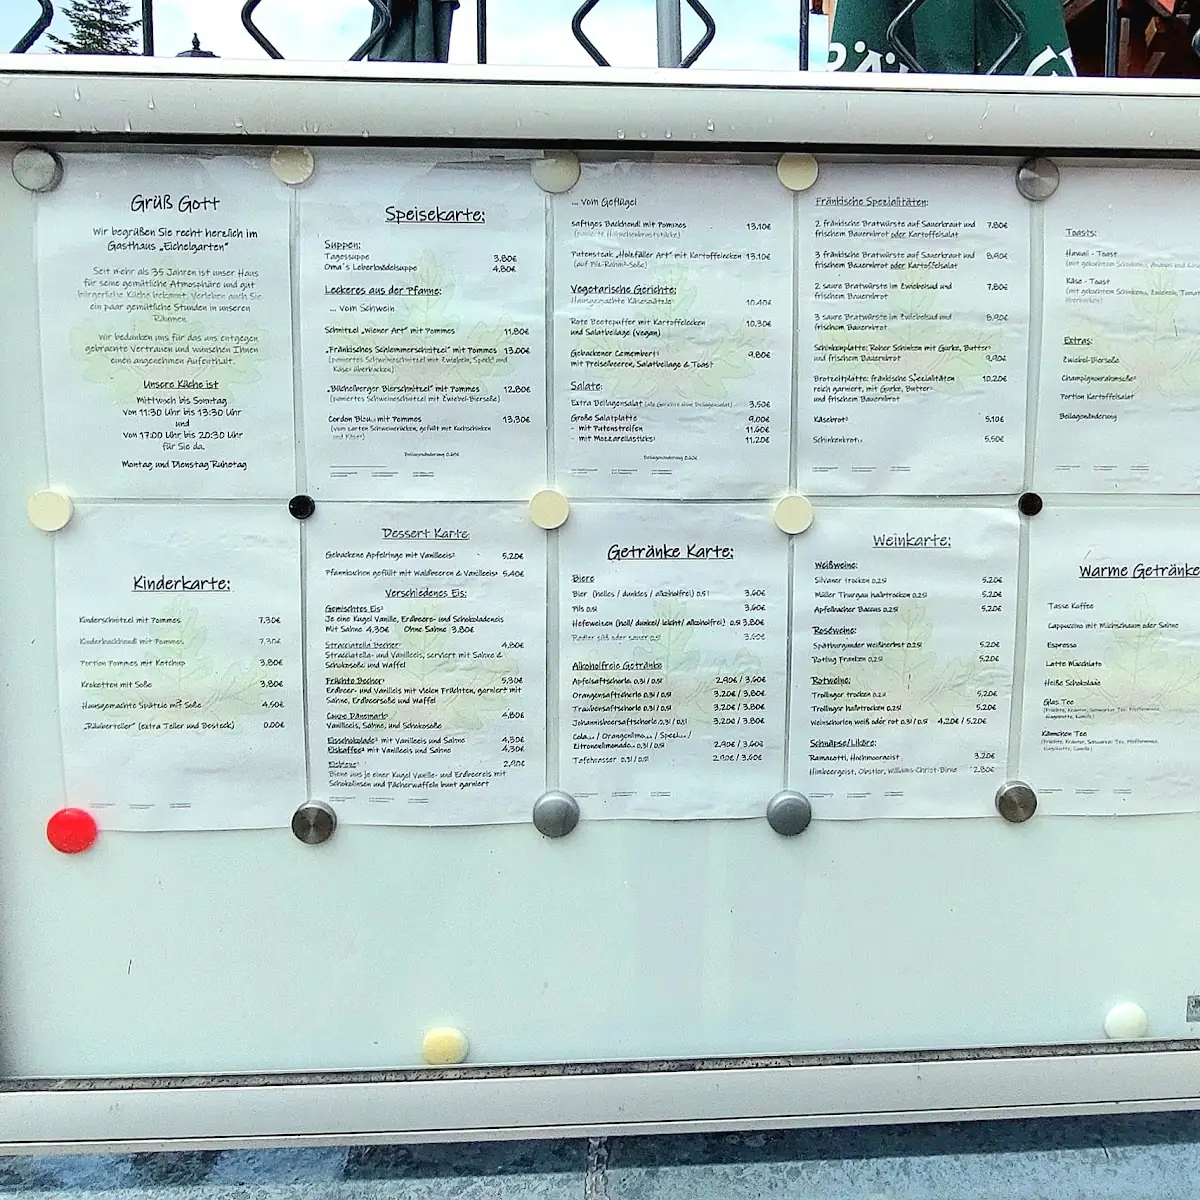 Grüß Gott
Wir begrüßen Sie recht herzlich im
Gasthaus „Eichelgarten"
Seit mehr als 35 Jahren ist unser Haus
für seine gemütliche Atmosphäre und gut
bürgerliche Küche bekannt. Verleben auch Sie
ein paar gemütliche Stunden in unseren
Räumen.
Wir bedanken uns für das uns entgegen
gebrachte Vertrauen und wünschen Ihnen
einen angenehmen Aufenthalt.
Unsere Küche ist
Mittwoch bis Sonntag
von 11:30 Uhr bis 13:30 Uhr
und
von 17:00 Uhr bis 20:30 Uhr
für Sie da.
Montag und Dienstag Ruhetag
Speisekarte:
Suppen:
Tagessuppe 3,80€
Oma´s Leberknödelsuppe 4,80€
Leckeres aus der Pfanne:
... vom Schwein
Schnitzel „Wiener Art" mit Pommes 11,80€
„Fränkisches Schlemmerschnitzel" mit Pommes 13,00€
(paniertes Schweineschnitzel mit Zwiebeln, Speck und
Käse überbacken)
„Büchelberger Bierschnitzel" mit Pommes 12,80€
(paniertes Schweineschnitzel mit Zwiebel-Biersoße)
Cordon Bleu mit Pommes 13,30€
(vom zarten Schweinerücken, gefüllt mit Kochschinken
und Käse)
Beilagenänderung 0,60€
... vom Geflügel
saftiges Backhendl mit Pommes 13,10€
(panierte Hähnchenbruststücke)
Putensteak „Holzfäller Art" mit Kartoffelecken 13,10€
(auf Pilz-Rahm-Soße)
Vegetarische Gerichte:
Hausgemachte Käsespätzle 10,40€
Rote Beetepuffer mit Kartoffelecken 10,30€
und Salatbeilage (vegan)
Gebackener Camembert 9,80€
mit Preiselbeeren, Salatbeilage & Toast
Salate:
Extra Beilagensalat (alle Gerichte ohne Beilagensalat) 3,50€
Große Salatplatte 9,00€
- mit Putenstreifen 11,60€
- mit Mozzarellasticks 11,20€
Beilagenänderung 0,60€
Fränkische Spezialitäten:
2 fränkische Bratwürste auf Sauerkraut und 7,80€
frischem Bauernbrot oder Kartoffelsalat
3 fränkische Bratwürste auf Sauerkraut und 8,90€
frischem Bauernbrot oder Kartoffelsalat
2 saure Bratwürste im Zwiebelsud und 7,80€
frischem Bauernbrot
3 saure Bratwürste im Zwiebelsud und 8,90€
frischem Bauernbrot
Schinkenplatte: Roher Schinken mit Gurke, Butter
und frischem Bauernbrot 9,90€
Brotzeitplatte: fränkische Spezialitäten 10,20€
reich garniert, mit Gurke, Butter
und frischem Bauernbrot
Käsebrot 5,10€
Schinkenbrot 5,50€
Toasts:
Hawaii - Toast
(mit gekochtem Schinken, Ananas und Käse
Käse - Toast
(mit gekochtem Schinken, Zwiebeln, Tomate
überbacken)
Extras:
Zwiebel-Biersoße
Champignonrahmsoße
Portion Kartoffelsalat
Beilagenänderung
Kinderkarte:
Kinderschnitzel mit Pommes 7,30€
Kinderbackhendl mit Pommes 7,30€
Portion Pommes mit Ketchup 3,80€
Kroketten mit Soße 3,80€
Hausgemachte Spätzle mit Soße 4,50€
„Räuberteller" (extra Teller und Besteck) 0,00€
Dessert Karte:
Gebackene Apfelringe mit Vanilleeis 5,20€
Pfannkuchen gefüllt mit Waldbeeren & Vanilleeis 5,40€
Verschiedenes Eis:
Gemischtes Eis
Je eine Kugel Vanille, Erdbeere- und Schokoladeneis
Mit Sahne 4,30€ Ohne Sahne 3,80€
Stracciatella Becher 4,80€
Stracciatella- und Vanilleeis, serviert mit Sahne &
Schokosoße und Waffel
Früchte Becher 5,30€
Erdbeer- und Vanilleeis mit vielen Früchten, garniert mit
Sahne, Erdbeersoße und Waffel
Coupe Dänemark 4,80€
Vanilleeis, Sahne, und Schokosoße
Eisschokolade mit Vanilleeis und Sahne 4,30€
Eiskaffee mit Vanilleeis und Sahne 4,30€
2,90€
Biene aus je einer Kugel Vanille- und Erdbeereis mit
Schokolinsen und Fächerwaffeln bunt garniert
Getränke Karte:
Biere
Bier (helles / dunkles / alkoholfrei) 0,5l 3,60€
Pils 0,5l 3,60€
Hefeweizen (hell/ dunkel/ leicht/ alkoholfrei) 0,5l 3,80€
Radler süß oder sauer 0,5l 3,60€
Alkoholfreie Getränke
Apfelsaftschorle 0,3l / 0,5l 2,90€ / 3,60€
Orangensaftschorle 0,3l / 0,5l 3,20€ / 3,80€
Traubensaftschorle 0,3l / 0,5l 3,20€ / 3,80€
Johannisbeersaftschorle 0,3l / 0,5l 3,20€ / 3,80€
Cola / Orangenlimo / Spezi /
Zitronenlimonade 0,3l / 0,5l 2,90€ / 3,60€
Tafelwasser 0,3l / 0,5l 2,90€ / 3,60€
Weinkarte:
Weißweine:
Silvaner trocken 0,25l 5,20€
Müller Thurgau halbtrocken 0,25l 5,20€
Apfelbacher Bacchus 0,25l 5,20€
Roséweine:
Spätburgunder Weißherbst 0,25l 5,20€
Rotling Franken 0,25l 5,20€
Rotweine:
Trollinger trocken 0,25l 5,20€
Trollinger halbtrocken 0,25l 5,20€
Weinschorlen weiß oder rot 0,3l / 0,5l 4,20€ / 5,20€
Schnäpse/Liköre:
Ramazotti, Hochmoorgeist 3,20€
Himbeergeist, Obstler, Williams-Christ-Birne 2,80€
Warme Getränke
Tasse Kaffee
Cappuccino mit Milchschaum oder Sahne
Espresso
Latte Macchiato
Heiße Schokolade
Glas Tee
(Früchte, Kräuter, Schwarzer Tee, Pfefferminze,
Hagebutte, Kamille)
Kännchen Tee
(Früchte, Kräuter, Schwarzer Tee, Pfefferminze,
Hagebutte, Kamille)